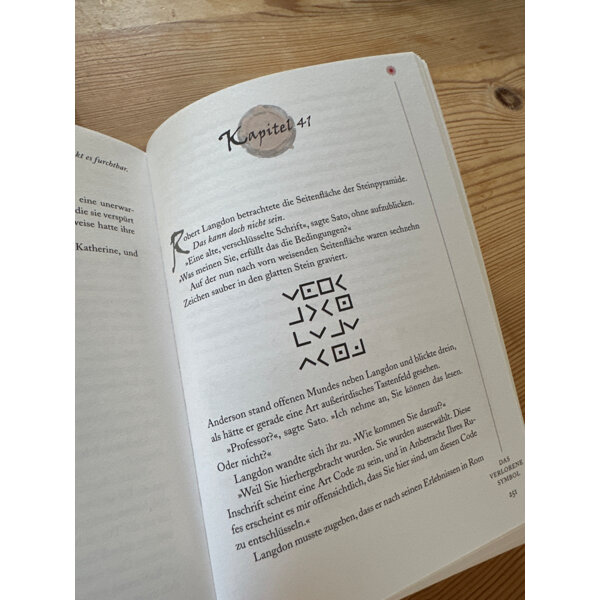 kt es furchtbar.
eine unerwar-
die sie verspürt
weise hatte ihre
Katherine, und
Kapitel 41
Robert Langdon betrachtete die Seitenfläche der Steinpyramide.
Das kann doch nicht sein.
»Eine alte, verschlüsselte Schrift«, sagte Sato, ohne aufzublicken.
»Was meinen Sie, erfüllt das die Bedingungen?«
Auf der nun nach vorn weisenden Seitenfläche waren sechzehn
Zeichen sauber in den glatten Stein graviert.
Anderson stand offenen Mundes neben Langdon und blickte drein,
als hätte er gerade eine Art außerirdisches Tastenfeld gesehen.
»Professor?«, sagte Sato. »Ich nehme an, Sie können das lesen.
Oder nicht?«
Langdon wandte sich ihr zu. »Wie kommen Sie darauf?«
»Weil Sie hierhergebracht wurden. Sie wurden auserwählt. Diese
Inschrift scheint eine Art Code zu sein, und in Anbetracht Ihres Ru-
fes erscheint es mir offensichtlich, dass Sie hier sind, um diesen Code
zu entschlüsseln.«
Langdon musste zugeben, dass er nach seinen Erlebnissen in Rom
DAS
VERLORENE
SYMBOL
251